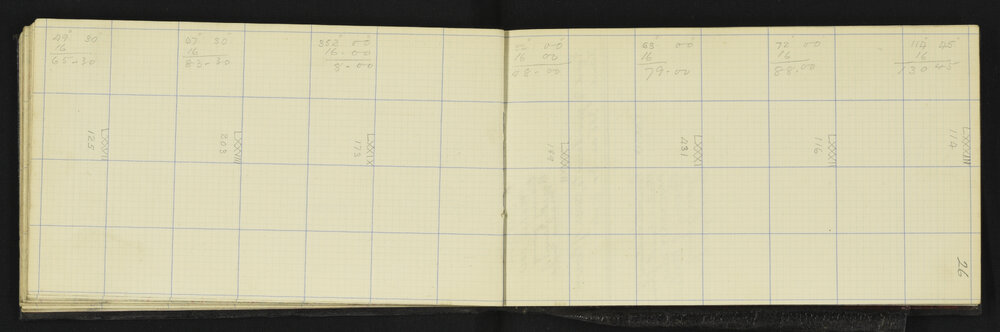 49° 30'
16
65-30
47° 30
16
83-30
352° 00'
16-00
8-00
00'
16 00
48-00
63° 00'
16
79-00
72° 00
16
88-00
114° 45'
16
130 45
LXXVII
125
LXXVIII
203
LXXIX
173
LXXX
149
LXXXI
431
LXXXII
116
LXXXIII
114
26